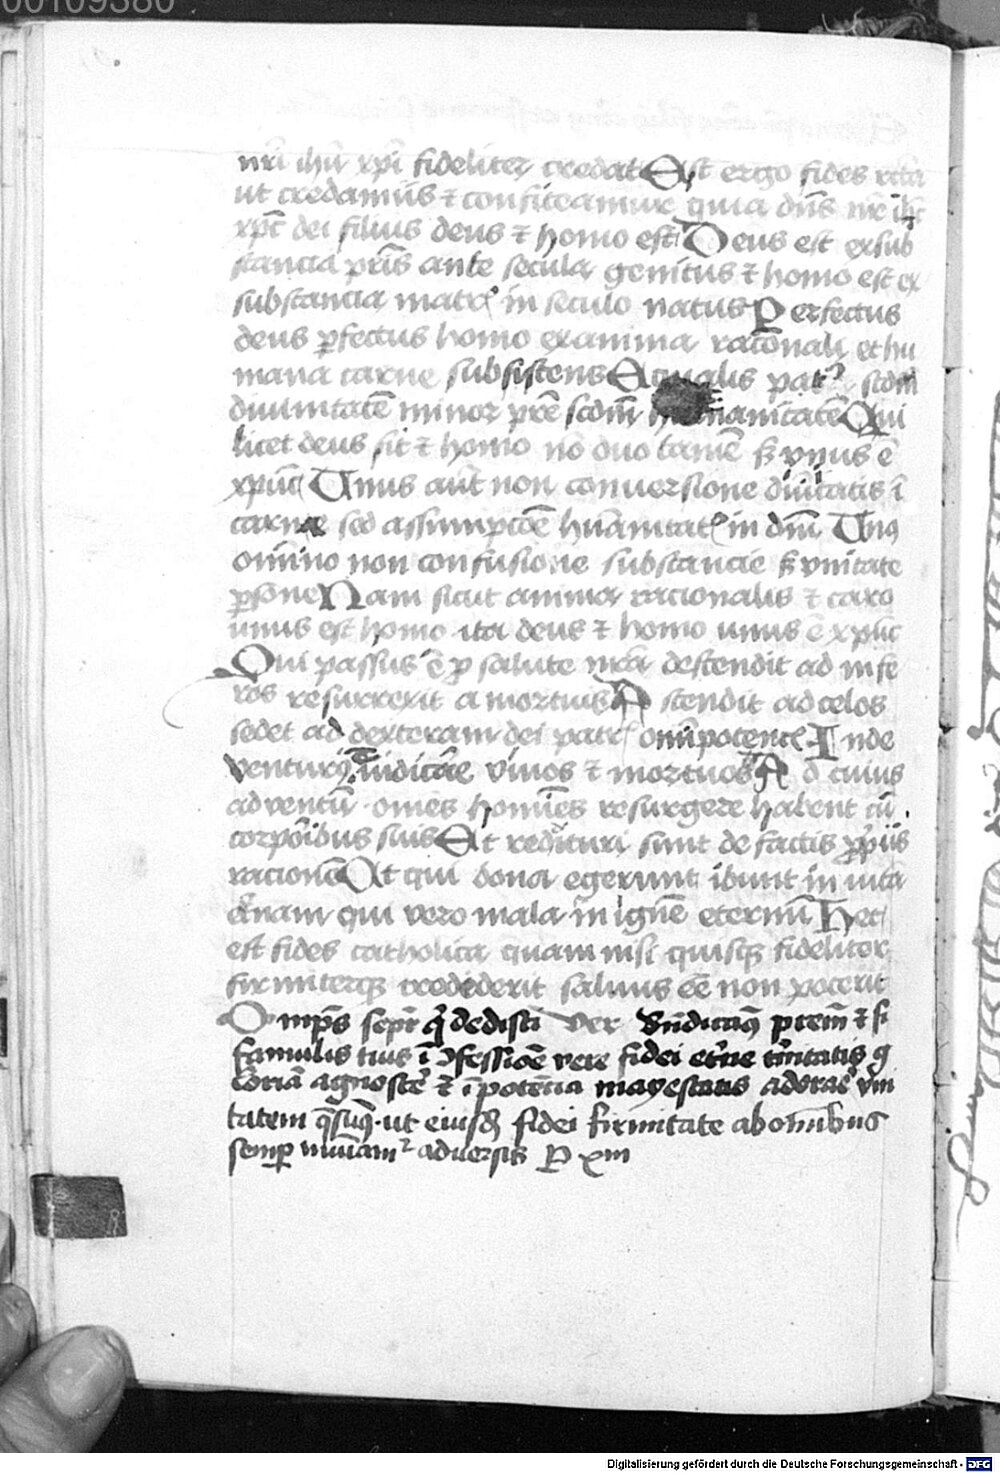 00109380
nr̄i ihū xp̄i fideliter credat Est ergo fides recta
ut credamus ⁊ confiteamur quia dn̄s nr̄ ihc̄
xpc̄ dei filius deus ⁊ homo est Deus est ex sub
stancia pr̄is ante secula genitus ⁊ homo est ex
substancia matrꝭ in seculo natus Perfectus
deus ꝑfectus homo ex anima racōnali et hu
mana carne subsistens Equalis patri scdm̄
diuinitatē minor prē scdm̄ humanitatē Qui
licet deus sit ⁊ homo nō duo tamē sꝫ vnus ē
xpūc Unus aūt non conuersione diuītatis ī
carne sed assumpcōe hūanitatꝭ in dm̄ Unꝰ
omīno non confusione substancie sꝫ vnitate
ꝑsone Nam sicut anima racionalis ⁊ caro
unus est homo ita deus ⁊ homo unus ē xpūc
Qui passus ē ꝓ salute nrā descendit ad infe
ros resurrexit a mortuis Ascendit ad celos
sedet ad dexteram dei patrꝭ omīpotentꝭ Inde
venturꝰ iudicāre vivos ⁊ mortuos Ad cuius
adventū omēs homīes resurgere habent cū
corporibus suis Et reddituri sunt de factis ꝓpiis
racionē Et qui bona egerunt ibunt in uitā
et̄nam qui vero mala in ignē eternū Hec
est fides catholica quam nisi quisqꝫ fideliter
firmiterqꝫ crediderit saluus eē non poterit
Omp̄s semp̄r q̄ dedisti ver bn̄dicaꝰ prēm ⁊ fi
famulis tuis ī ꝯfessiōe vere fidei et̄ne tr̄nitatis g
loriā agnoscēr ⁊ ī potētia mayestatis adorāe vni
tatem q̄sūꝰ ut eiusdē fidei firmitate ab omībus
semꝑ muniamꝰ adversis P xm
Digitalisierung gefördert durch die Deutsche Forschungsgemeinschaft - DFG